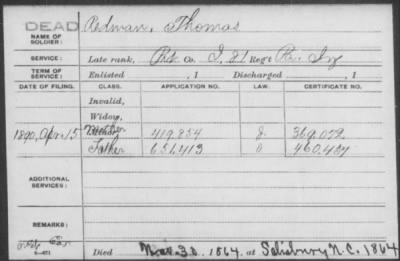 DEAD
NAME OF SOLDIER: Redman, Thomas
SERVICE: Late rank, Co. I, 81 Reg't Pa. Inf
TERM OF SERVICE: Enlisted , 1 Discharged , 1
DATE OF FILING. CLASS. APPLICATION NO. LAW. CERTIFICATE NO.
Invalid,
Widow,
Mother 419.854 369.072
1890, Apr. 15 Father 651.413
ADDITIONAL SERVICES:
REMARKS:
Died Nov. 30 1864. at Salisbury N.C. 1864